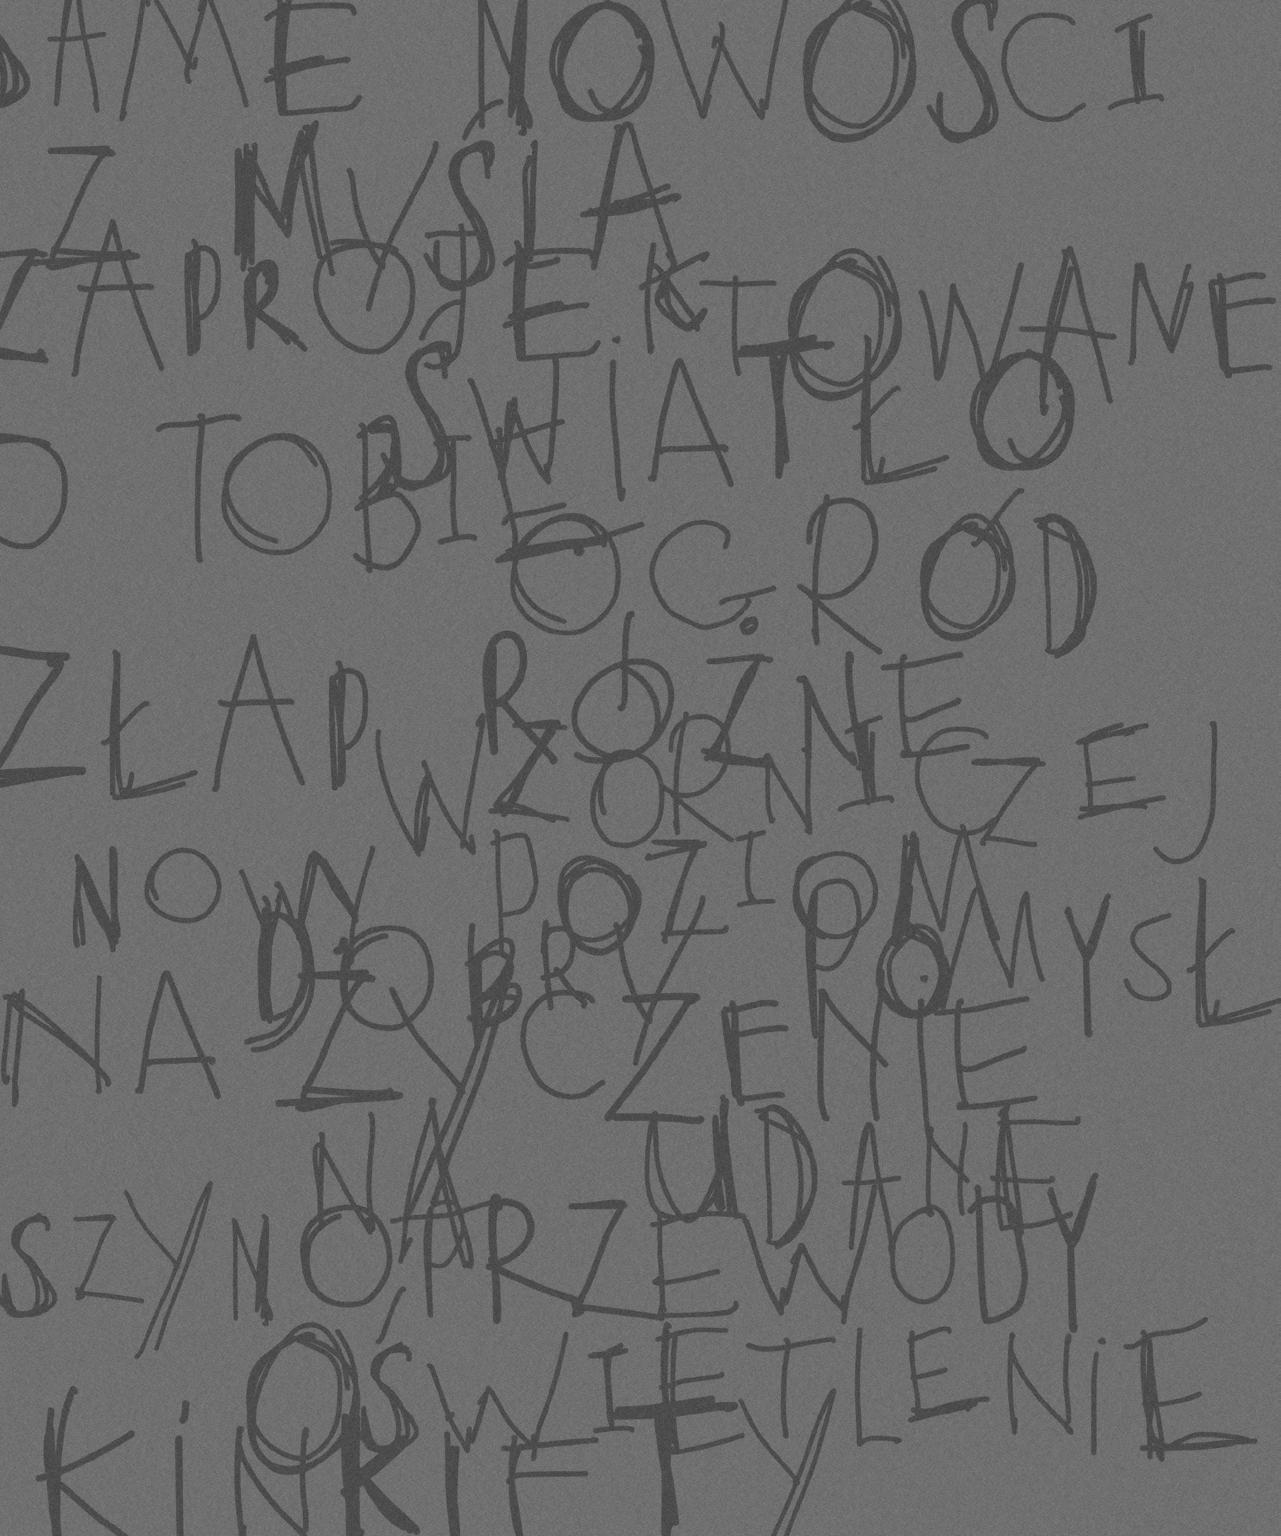 SAME NOWOŚCI
Z MYŚLĄ
ZAPROJEKTOWANE
O TOBIE
ŚWIATŁO
OGRÓD
ZŁAP RÓŻNE
WZORNICZEJ
NOWY POZIOM
DOBRY POMYSŁ
NA ŻYCZENIE
NA UDANE
SZYNOPRZEWODY
OŚWIETLENIE
KINKIETY